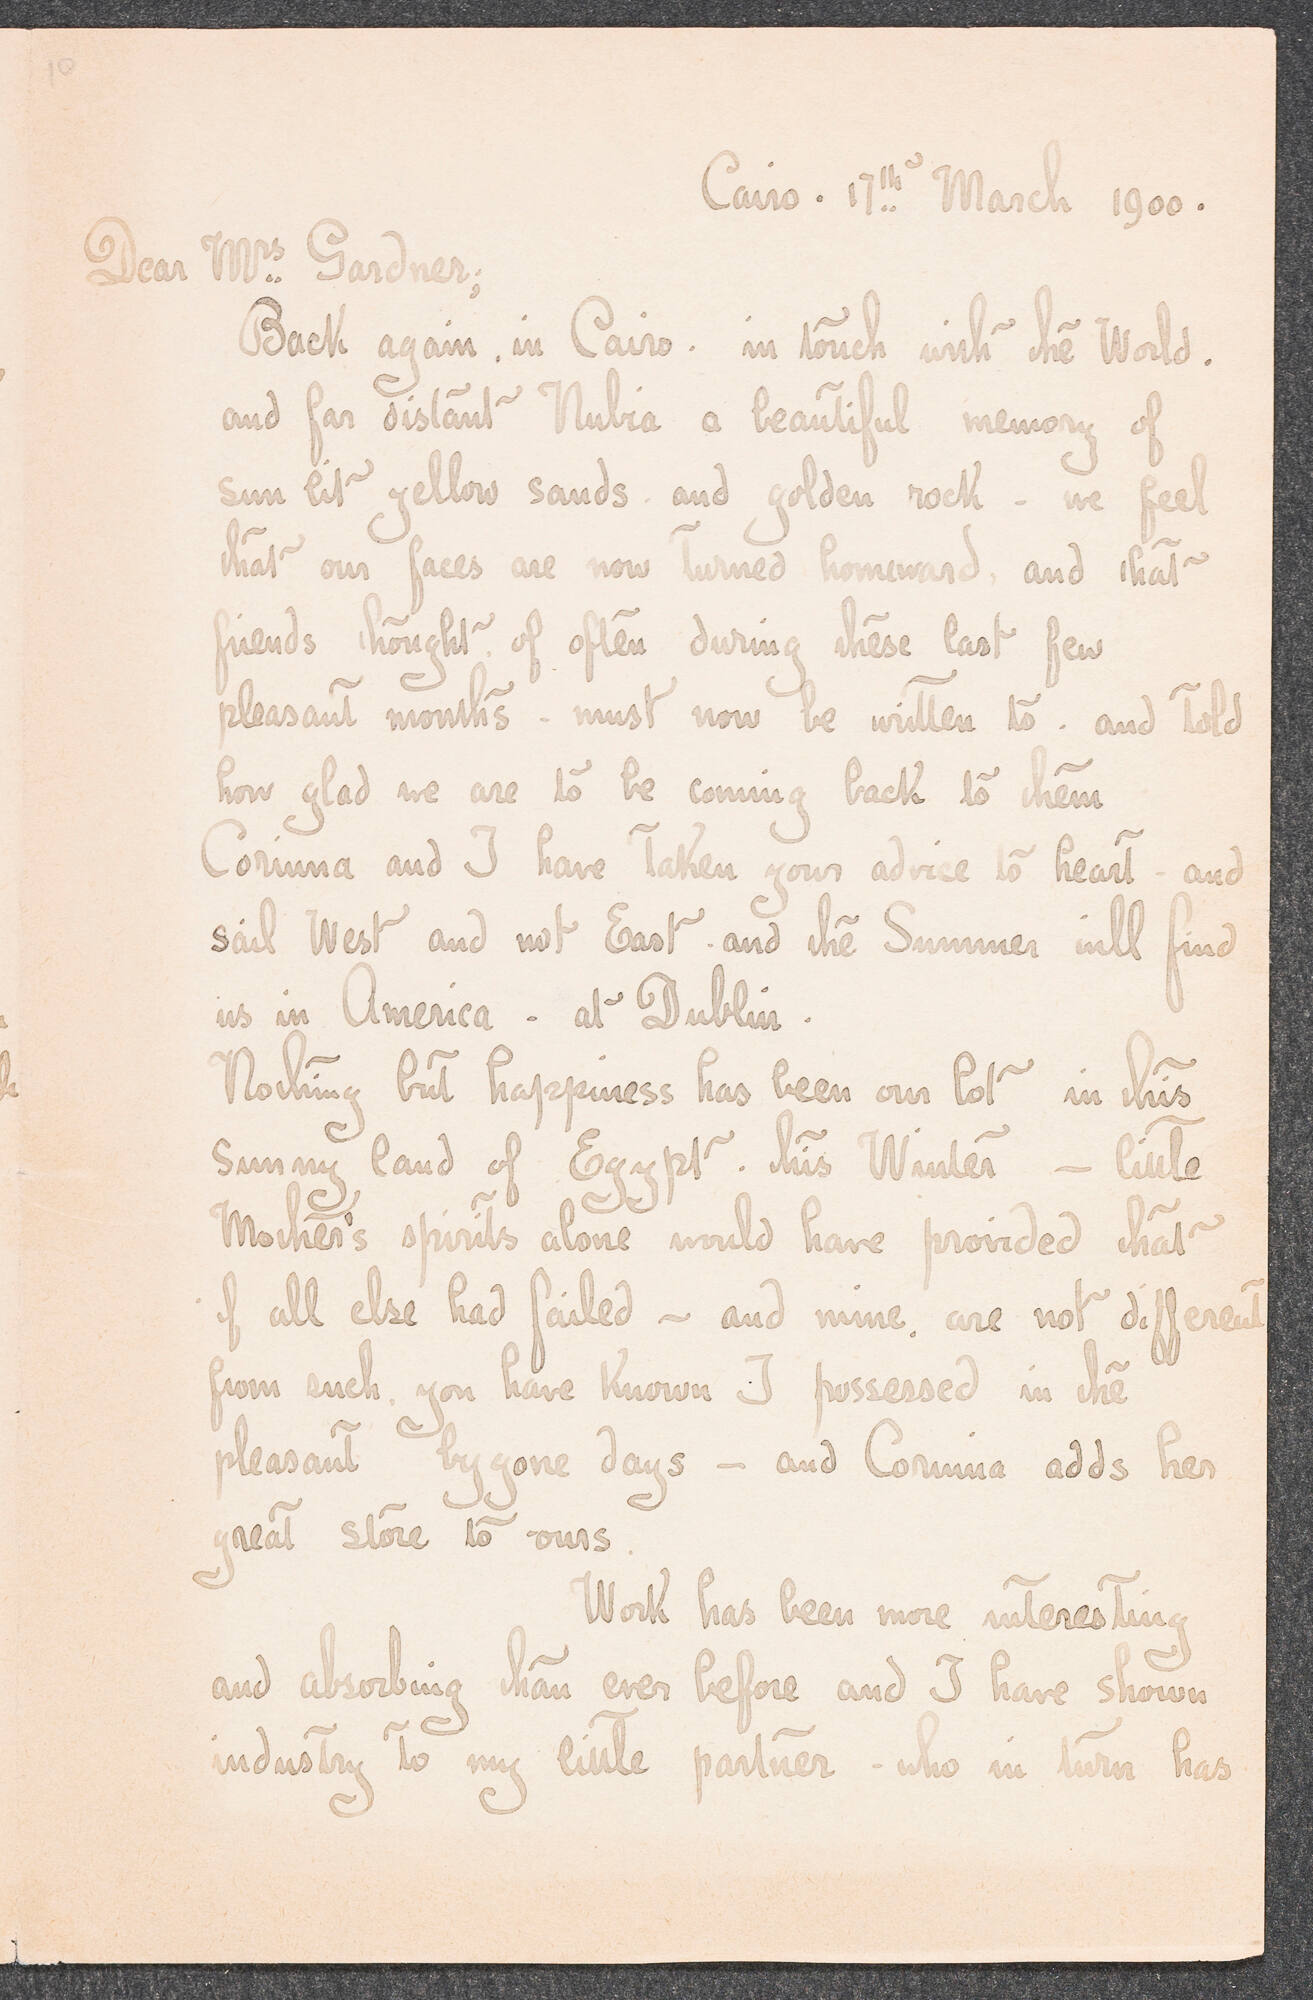 10
Cairo. 17th March 1900.
Dear Mrs. Gardner;
Back again, in Cairo. in touch with the World.
and far distant Nubia a beautiful memory of
sun lit yellow sands. and golden rock - we feel
that our faces are now turned homeward, and that
friends thought of often during these last few
pleasant months - must now be written to. and told
how glad we are to be coming back to them
Corinna and I have taken your advice to heart - and
sail West and not East. and the Summer will find
us in America - at Dublin.
Nothing but happiness has been our lot in this
sunny land of Egypt. this Winter - little
Mother's spirits alone would have provided that
if all else had failed ~ and mine, are not different
from such, you have known I possessed in the
pleasant bygone days - and Corinna adds her
great store to ours.
Work has been more interesting
and absorbing than ever before and I have shown
industry to my little partner - who in turn has